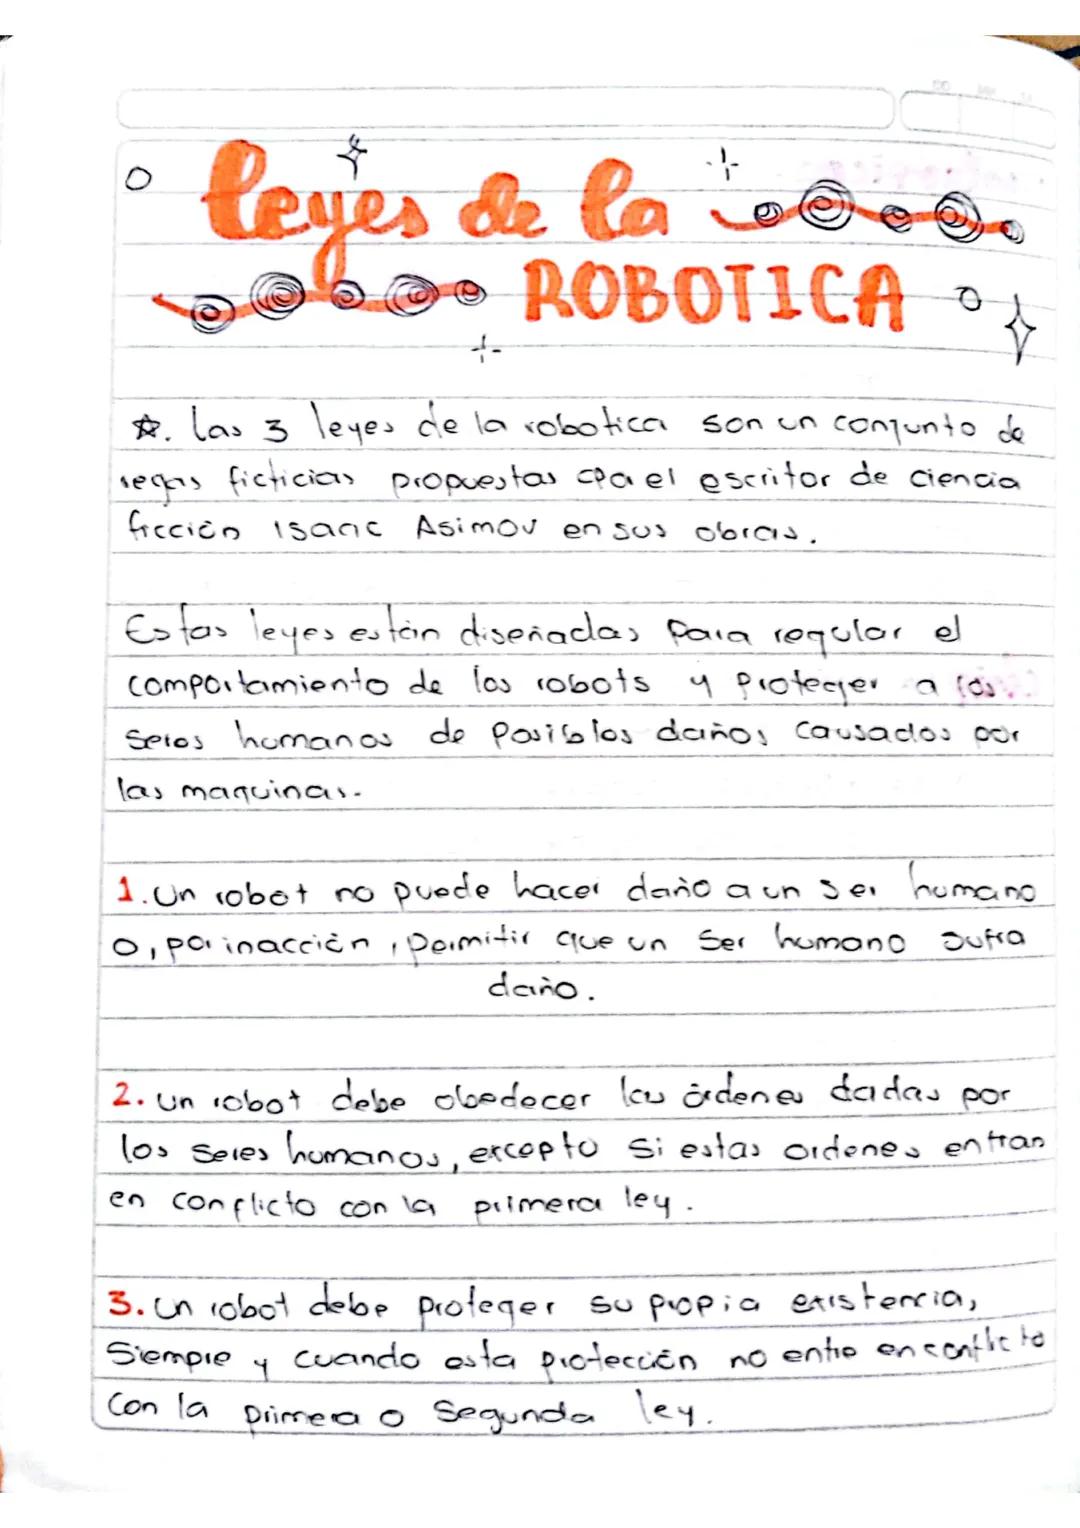 leyes de la
ROBOTICA
☆. las 3 leyes de la robotica son un conjunto de
regas ficticias propuestas el escritor de ciencia
ficción Isaac Asimov en sus obras.
Estas leyes están diseñadas para regular el
comportamiento de los robots y proteger a los
seres humanos de posibles daños causados por
las maquinas.
1. Un robot no puede hacer daño a un ser humano
o, por inacción, permitir que un ser humano sufra
daño.
2. un robot debe obedecer las órdenes dadas por
los seres humanos, excepto si estas ordenes entran
en conflicto con la primera ley.
3. un robot debe proteger su propia existencia,
Siempre y cuando esta protección no entre en conflicto
Con la primera o Segunda ley.